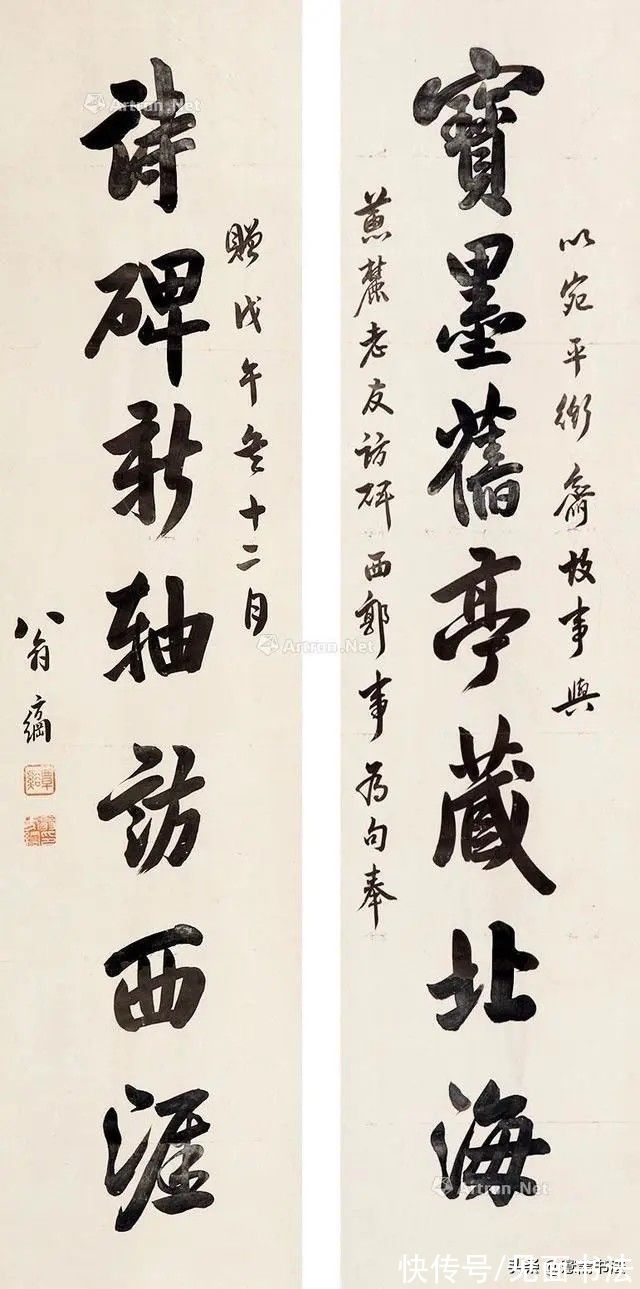 以宛平衙齋故事與
寶墨舊亭藏北海
蕙麓老友訪碑西郭事為句奉
贈戊午冬十二月
詩碑新軸訪西涯
翁方綱
覃谿
Artron.Net
Artron.Net
Artron.Net
快传号/见面书法